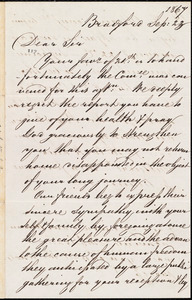 1867
Bradford Sep. 23
Dear Sir
Yours five of 20th is to hand
fortunately the Com'ee was con
vened for this aftn. We deeply
regret the report you have to
give of your health & pray
God graciously to strengthen
you that you may not return
home disappointed in the object
of your long journey.
Our friends beg to express their
sincere sympathy with you
self & family by foregoing alone
the great pleasure and the advan
to the cause of human freedom
they anticipated by a large public
gathering for your reception